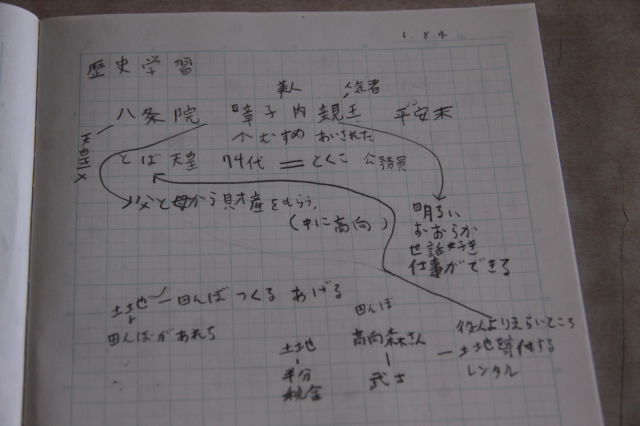 1.8.4
歴史学習
美人 人気者
八条院 暲子内親王 平安末
天皇三×
↑むすめ あいされた
とば天皇 74代 = とくこ 公務員
父と母から財産をもらう。
(中に高向)
明るい
おおらか
世話好き
仕事ができる
土地 ー 田んぼ つくる あげる
田んぼがあれち
土地
半分
税金
田んぼ
高向森さん
武士
役人よりえらいところ
ー土地を寄付する
レンタル